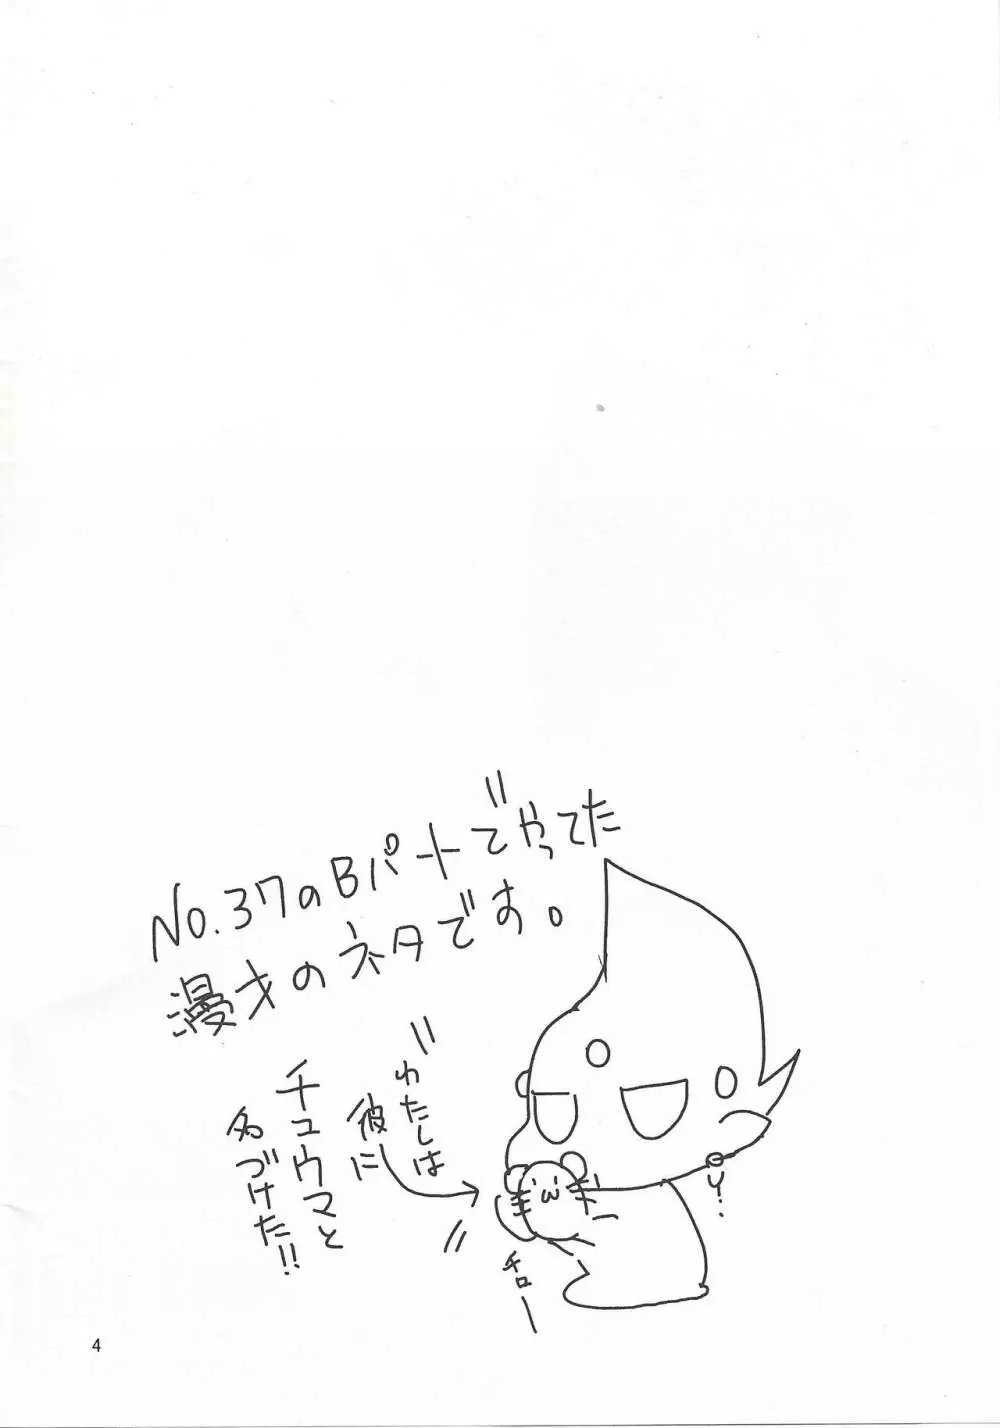 No.37のBパートでやってた
漫才のネタです。
"わたしは
彼に
チュウマと
名づけた!!"
チロー
4